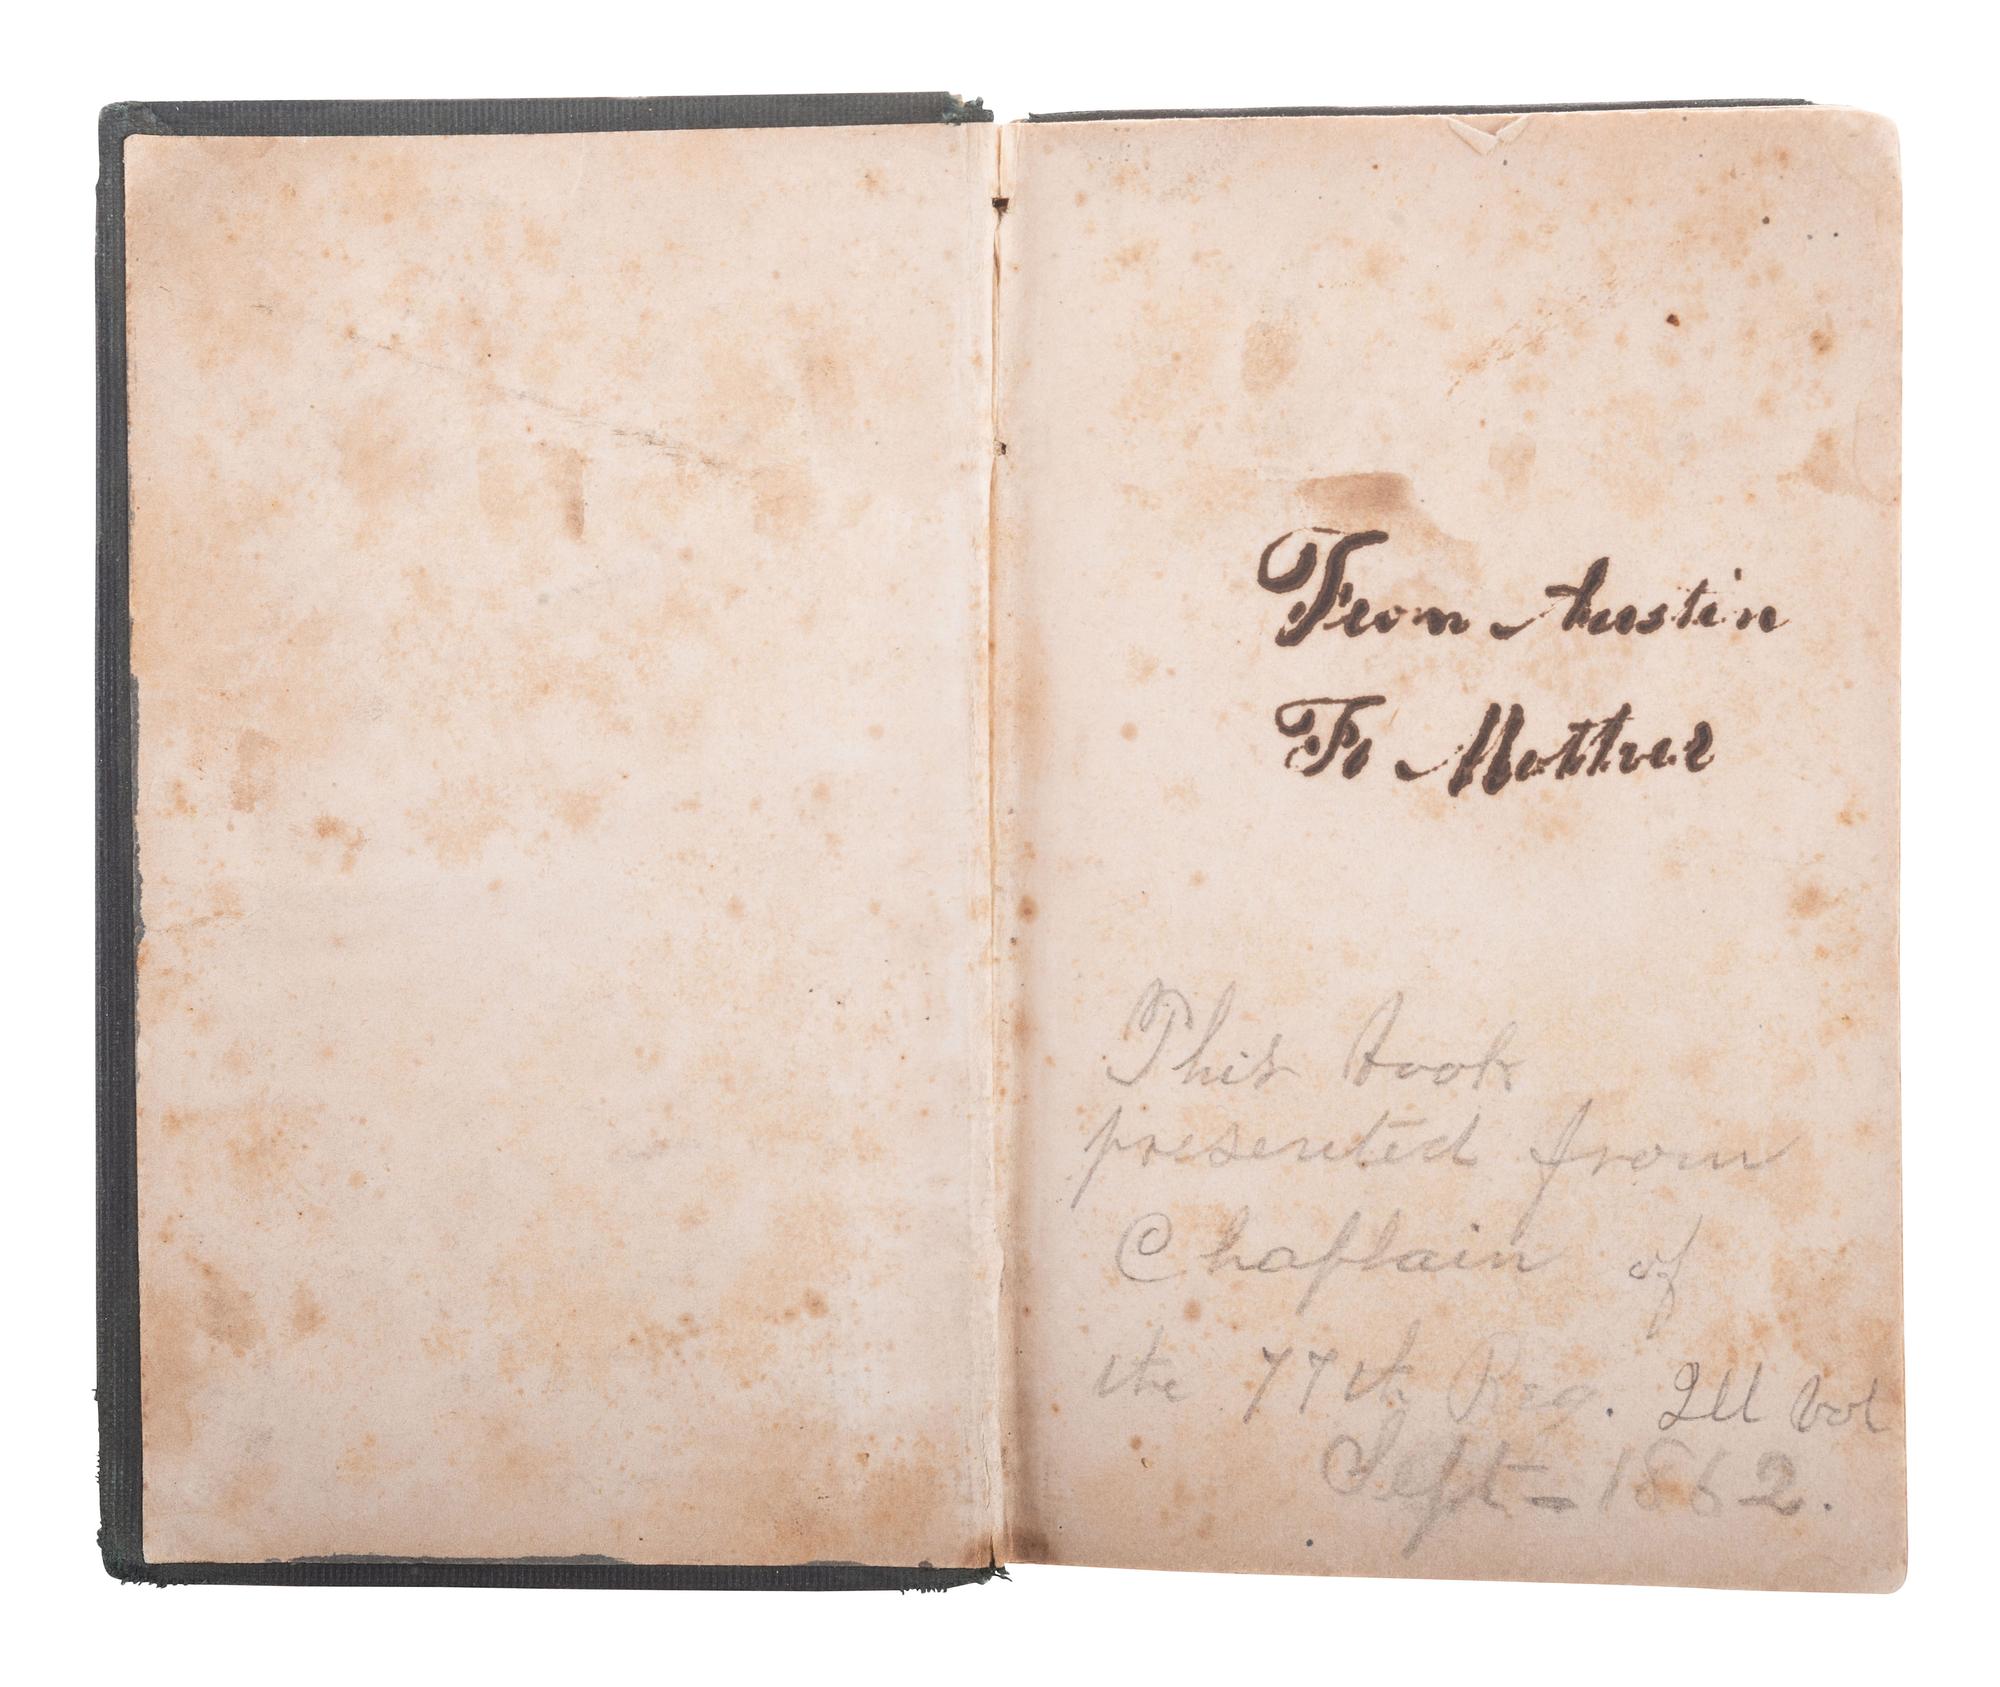 From Austin
To Mother
This book
presented from
Chaplain of
the 77th Reg. Ill Vol
Sept - 1862.